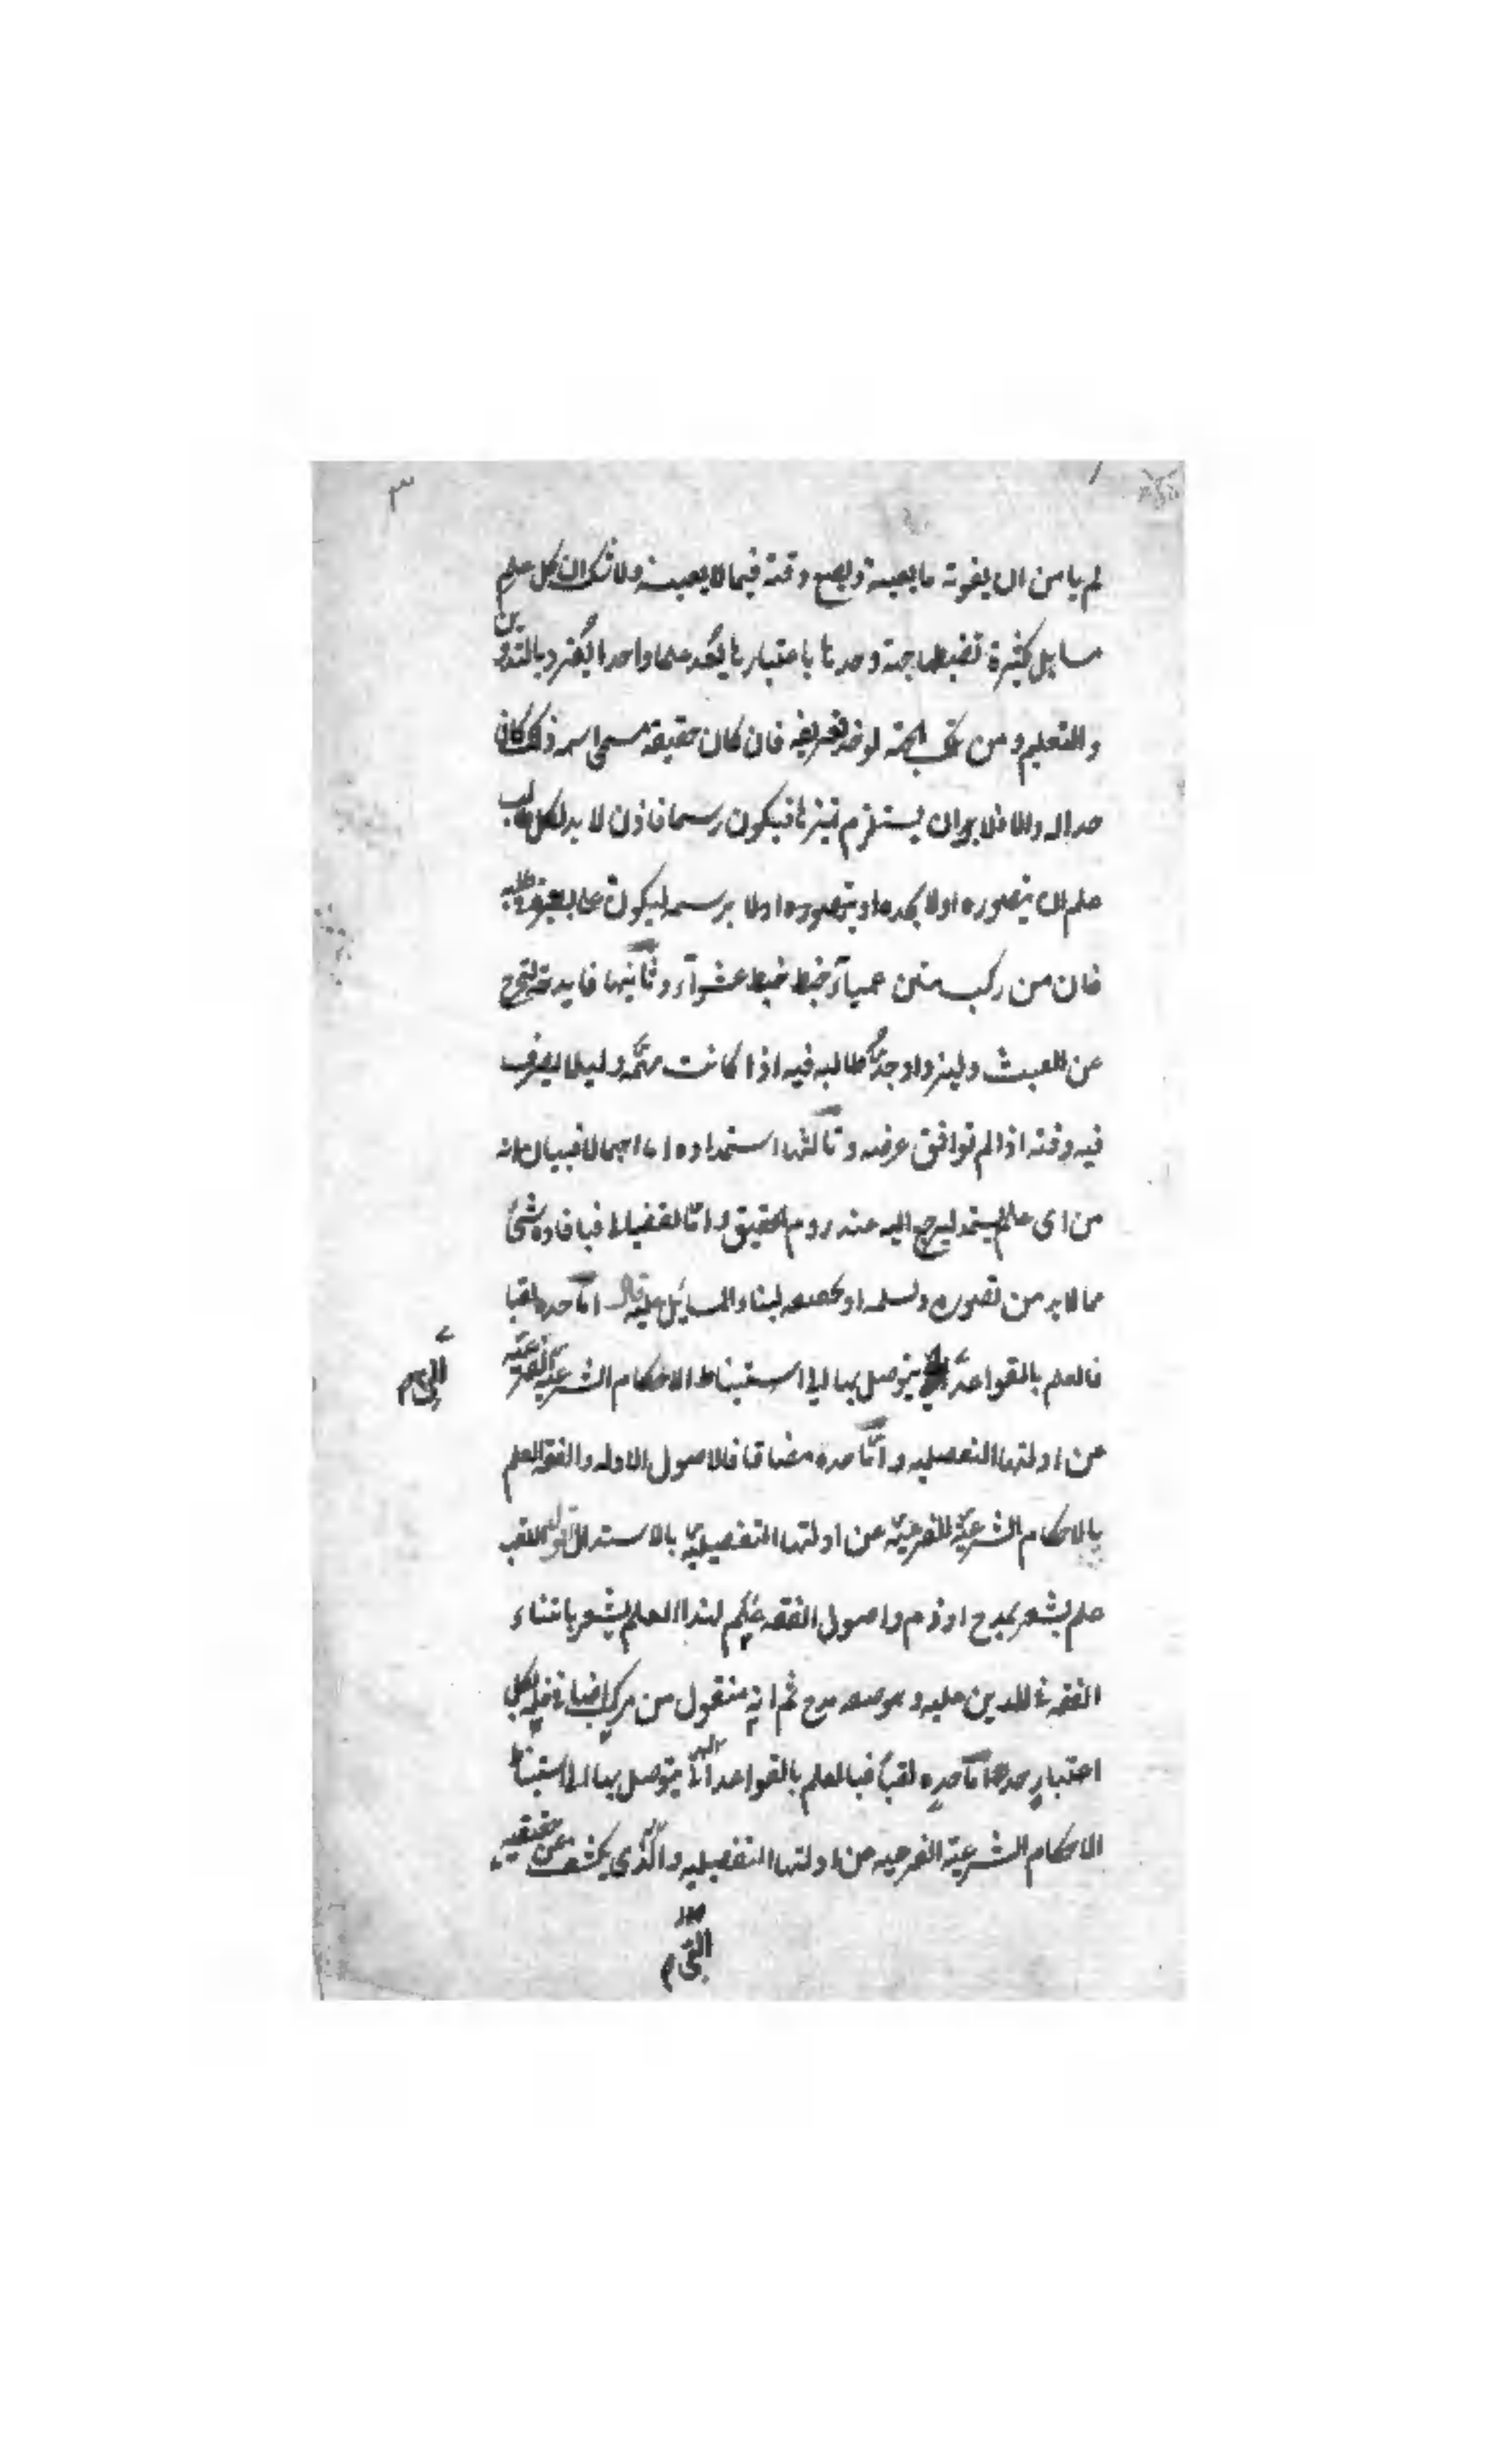 ٣
لم يامن ان يفوته ما يعينه ويضيع وقته فيما لا يعينه ولا شك ان كل علم
مسايل كثيرة تضبطها جهة وحدتها باعتبارها يُعد علما واحدا يُفرد بالتدوين
والتعليم ومن تلك الجهة يوخذ تعريفه فان كان حقيقة مسمى اسمه ذلك كان
حدا له والا فلا بد ان يستلزم تميزها فيكون رسما فاذن لا بد لكل طالب
علم ان يتصوره اولا بحده او يتصوره اولا برسمه ليكون على بصيرة في طلبه
فان من ركب متن عمياء خبط خبط عشوآء وثانيها فايدته ليخرج
عن العبث وليزداد جدُّ طالبه فيه اذا كانت مهمّة وليلا يصرف
فيه وقته اذا لم توافق غرضه وثالثها استمداده اما اجمالا فببيان انه
من اى علم يستمد ليرجع اليه عند روم التحقيق وامّا تفصيلا فبافادة شئ
مما لا بد من تصوره وتسلمه او تحققه لبناء المسائل عليه قال امّا حده لقبا
فالعلم بالقواعد يتوصل بها الى استنباط الاحكام الشرعية الفرعيّة
التى م
عن ادلتها التفصيليه وامّا حده مضافا فالاصول الادله والفقه العلم
بالاحكام الشرعيّة الفرعيّة عن ادلتها التفصيليّة بالاستدلال اقول اللقب
علم يشعر بمدح او ذم واصول الفقه علم لهذا العلم يشعر بابتناء
الفقه فى الدين عليه وهو صفه مدح ثم انه منقول من مركب اضافى فله بكل
اعتبارٍ حد امّا حده لقباً فالعلم بالقواعد التى يتوصل بها الى استنباط
الاحكام الشرعيّة الفرعيه عن ادلتها التفصيليه والّذى يكشف عن حقيقته
التى م